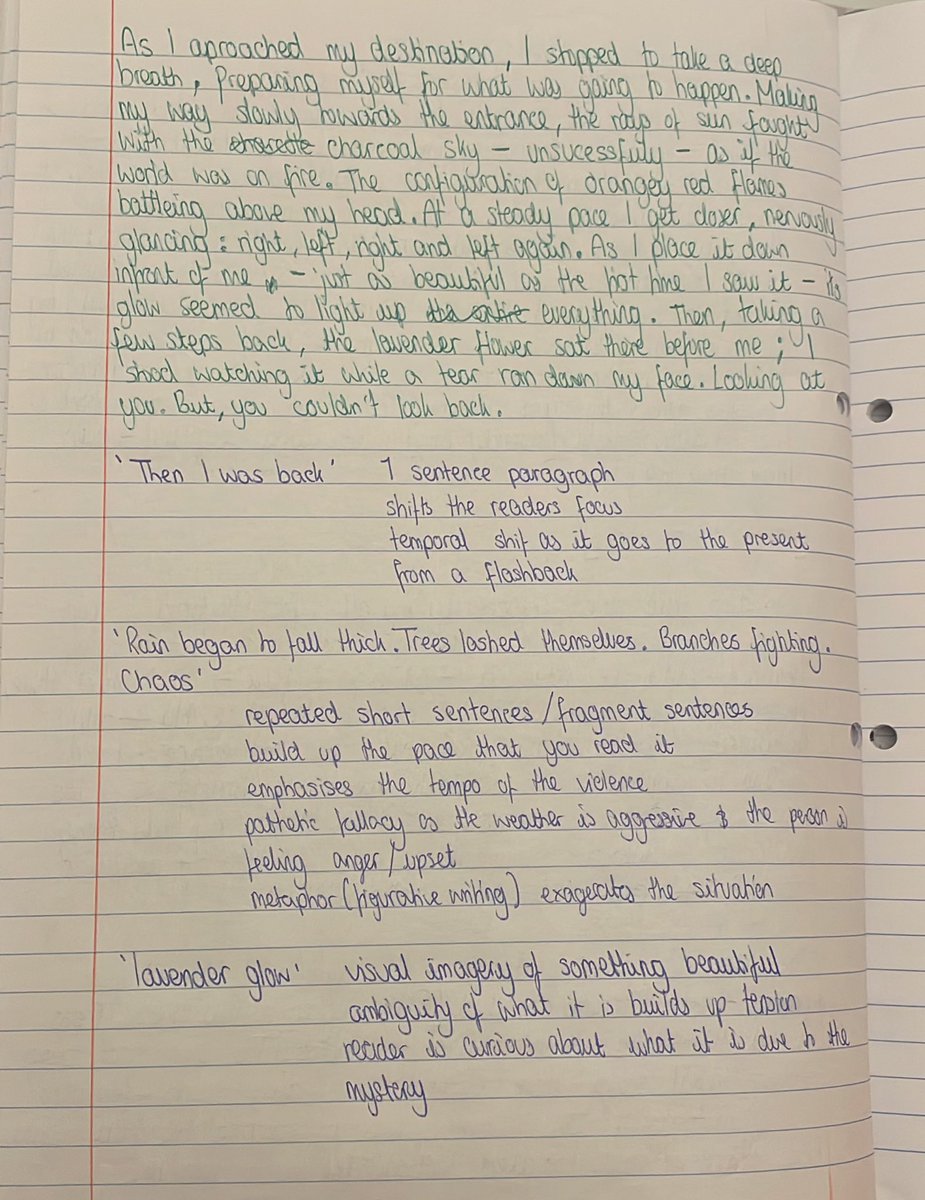 As I aproached my destination, I stopped to take a deep
breath, preparing myself for what was going to happen. Making
my way slowly towards the entrance, the rays of sun fought
with the charcoal sky - unsucessfuly - as if the
world was on fire. The configuration of orangey red flames
battleing above my head. At a steady pace I get closer, nervously
glancing: right, left, right and left again. As I place it down
infront of me - just as beautiful as the last time I saw it - its
glow seemed to light up everything. Then, taking a
few steps back, the lavender flower sat there before me; I
stood watching it while a tear ran down my face. Looking at
you. But, you couldn't look back.
'Then I was back' 1 sentence paragraph
shifts the readers focus
temporal shif as it goes to the present
from a flashback
'Rain began to fall thick. Trees lashed themselves. Branches fighting.
Chaos'
repeated short sentences/fragment sentences
build up the pace that you read it
emphasises the tempo of the violence
pathetic fallacy as the weather is aggressive & the person is
feeling anger/upset
metaphor (figurative writing) exagerates the situation
'lavender glow' visual imagery of something beautiful
ambiguity of what it is builds up tension
reader is curious about what it is due to the
mystery